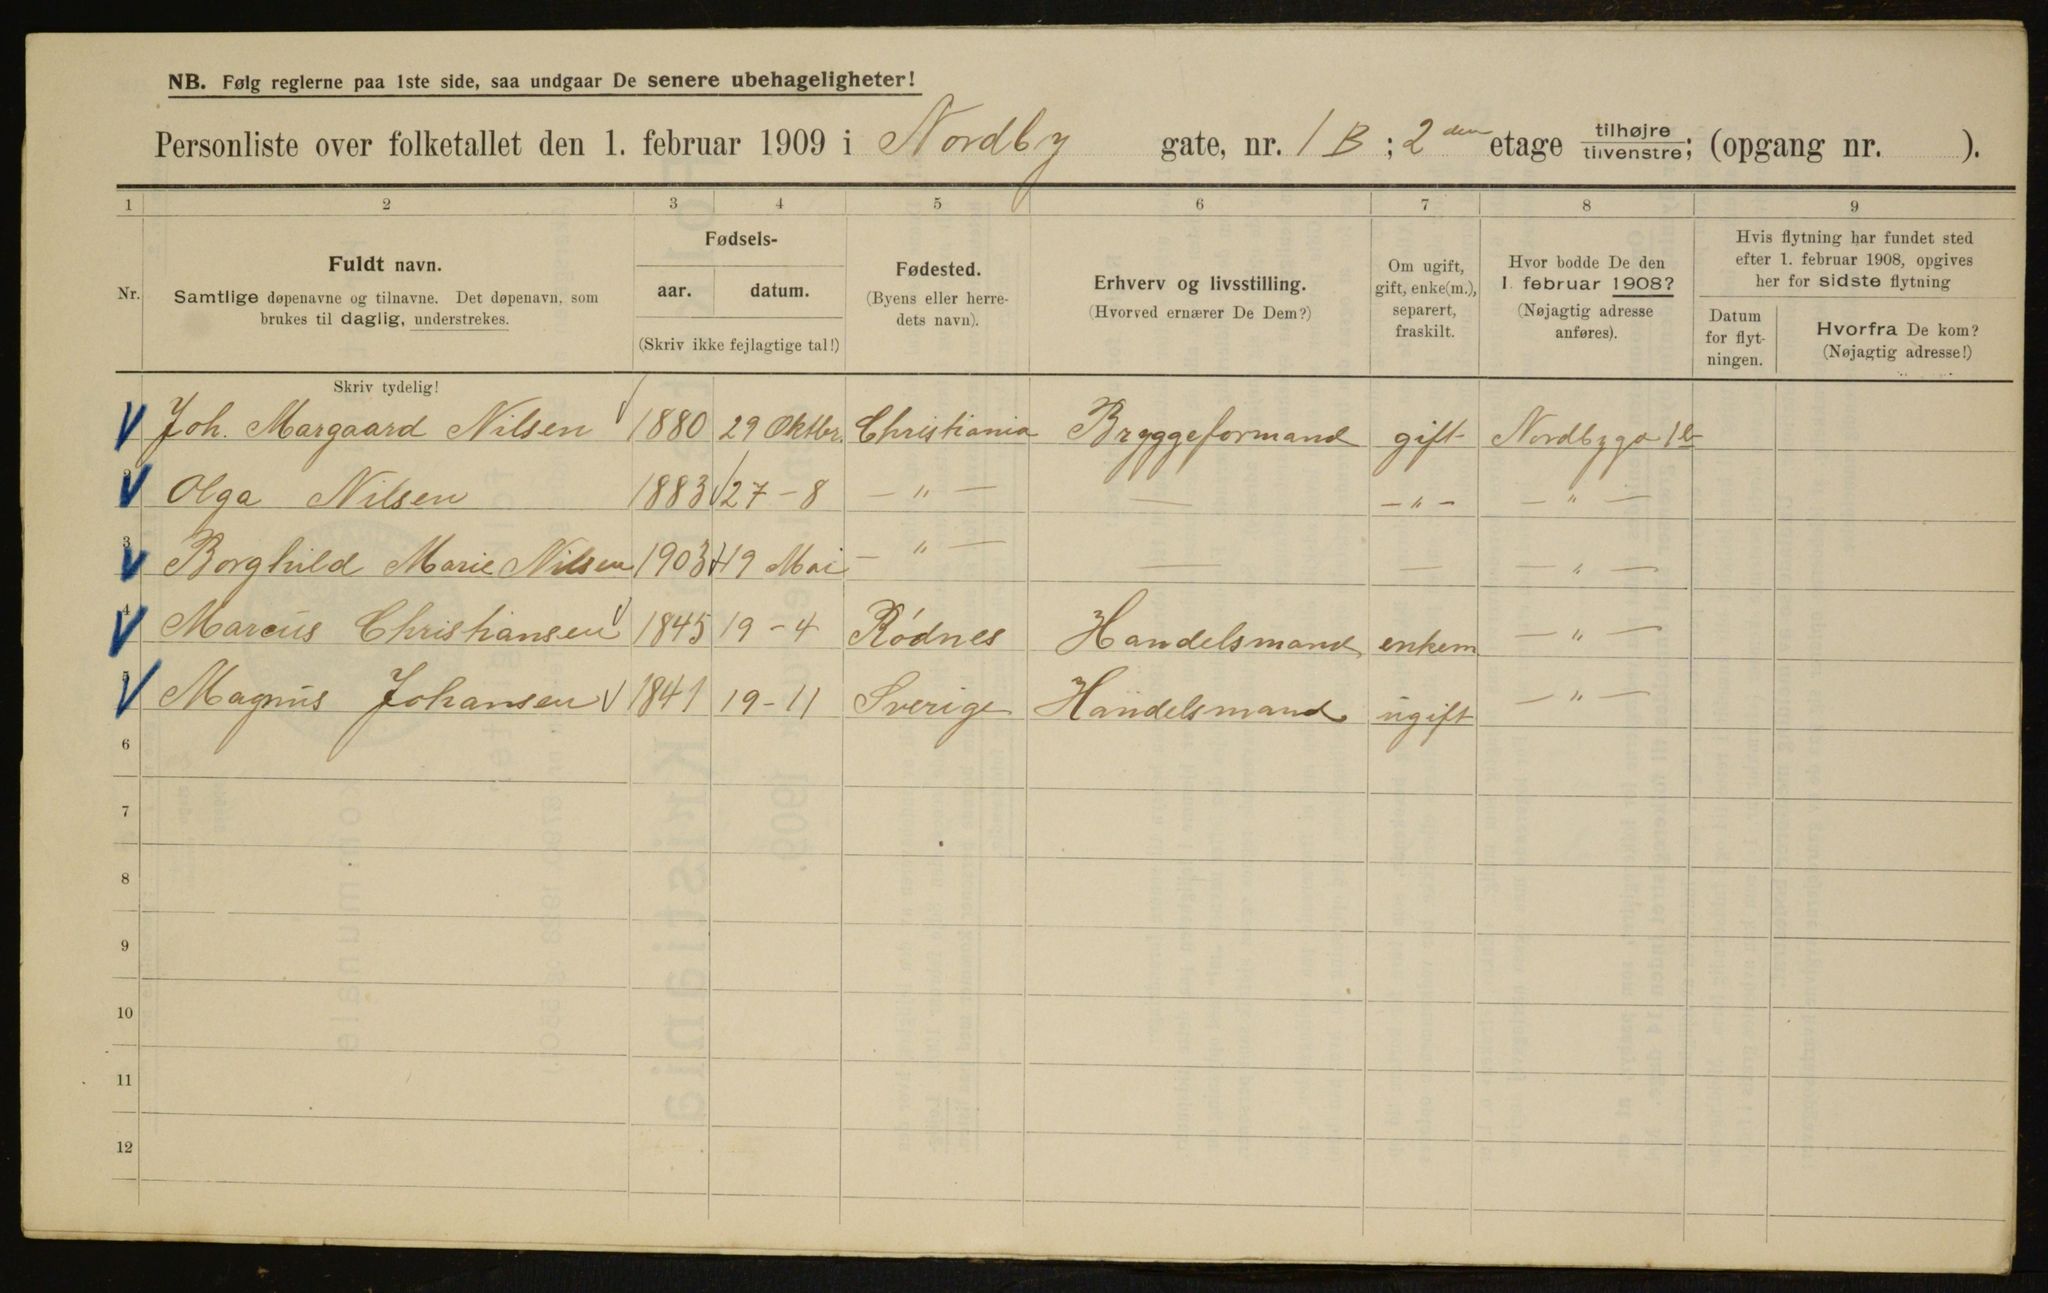 NB. Følg reglerne paa 1ste side, saa undgaar De senere ubehageligheter!
Personliste over folketallet den 1. februar 1909 i Nordby gate, nr. 1 B ; 2 den etage tilhøjre/tilvenstre; (opgang nr. ).
1 2 3 4 5 6 7 8 9
Nr.
Fuldt navn.
Samtlige døpenavne og tilnavne. Det døpenavn, som
brukes til daglig, understrekes.
Fødsels-
aar. datum.
(Skriv ikke fejlagtige tal!)
Fødested.
(Byens eller herre-
dets navn).
Erhverv og livsstilling.
(Hvorved ernærer De Dem?)
Om ugift,
gift, enke(m.),
separert,
fraskilt.
Hvor bodde De den
1. februar 1908?
(Nøjagtig adresse
anføres).
Hvis flytning har fundet sted
efter 1. februar 1908, opgives
her for sidste flytning
Datum
for flyt-
ningen.
Hvorfra De kom?
(Nøjagtig adresse!)
Skriv tydelig!
Joh. Margaard Nilsen 1880 29 Oktbr. Christiania Bryggeformand gift Nordbyga 1b
2 Olga Nilsen 1883 27 - 8 — " — — - " - — " —
3 Borghild Marie Nilsen 1903 19 Mai — " — — — — " —
4 Marcus Christiansen 1845 19 - 4 Rødnes Handelsmand enkem — " —
5 Magnus Johansen 1841 19 - 11 Sverige Handelsmand ugift — " —
6
7
8
9
10
11
12